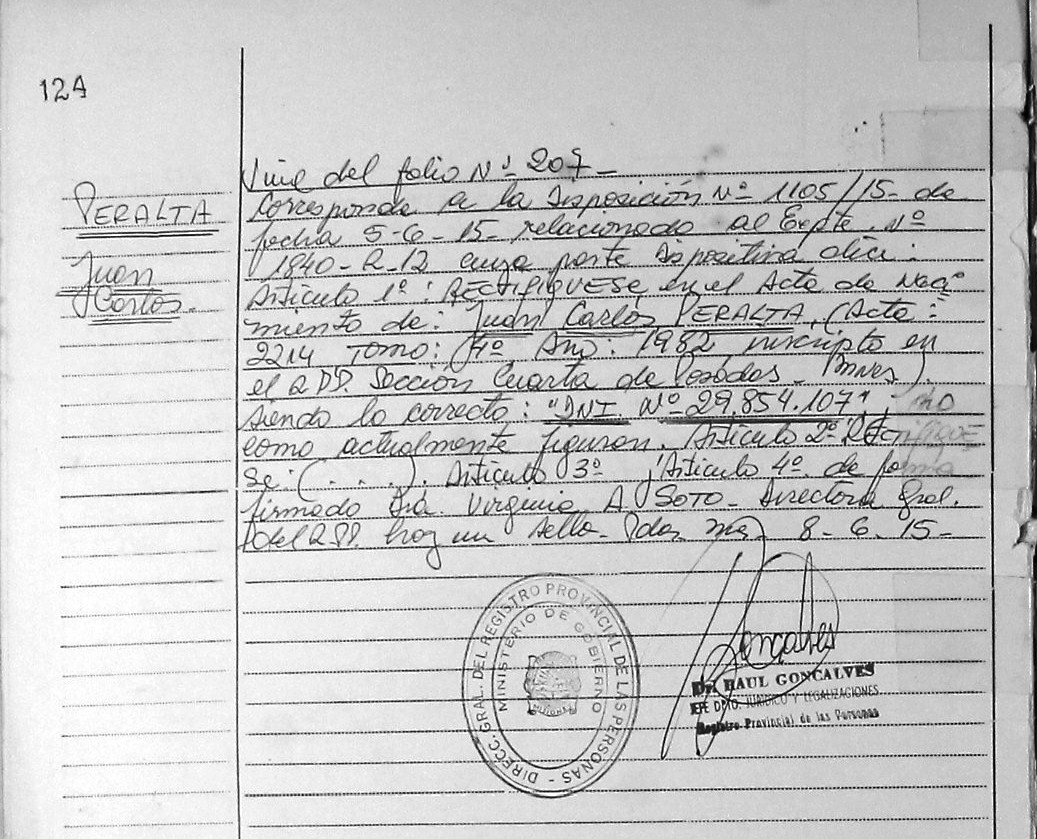 124
PERALTA
Juan
Carlos.
Viene del folio Nº 207-
Corresponde a la Disposición Nº 1105/15- de
fecha 5-6-15- relacionado al Expte. Nº
1840-R-12 cuya parte Dispositiva dice:
Artículo 1º: RECTIFIQUESE en el Acta de Naci
miento de: Juan Carlos PERALTA, (Acta:
2214 Tomo: 4º Año: 1982 inscripto en
el RPP. Sección Cuarta de Posadas - Mnes)
siendo lo correcto: "DNI. Nº 29.854.107", no
como actualmente figuran. Artículo 2º RECTIFIQUE
SE: (. . .). Artículo 3º Artículo 4º de forma
firmado Dra. Virginia A. SOTO - Directora Gral.
del RPP. hay un sello - Pdas, Mnes, 8-6-15-
DIRECC. GRAL. DEL REGISTRO PROVINCIAL DE LAS PERSONAS -
MINISTERIO DE GOBIERNO
MISIONES
Goncalves
Dr. RAUL GONCALVES
JEFE DPTO. JURIDICO Y LEGALIZACIONES
Registro Provincial de las Personas